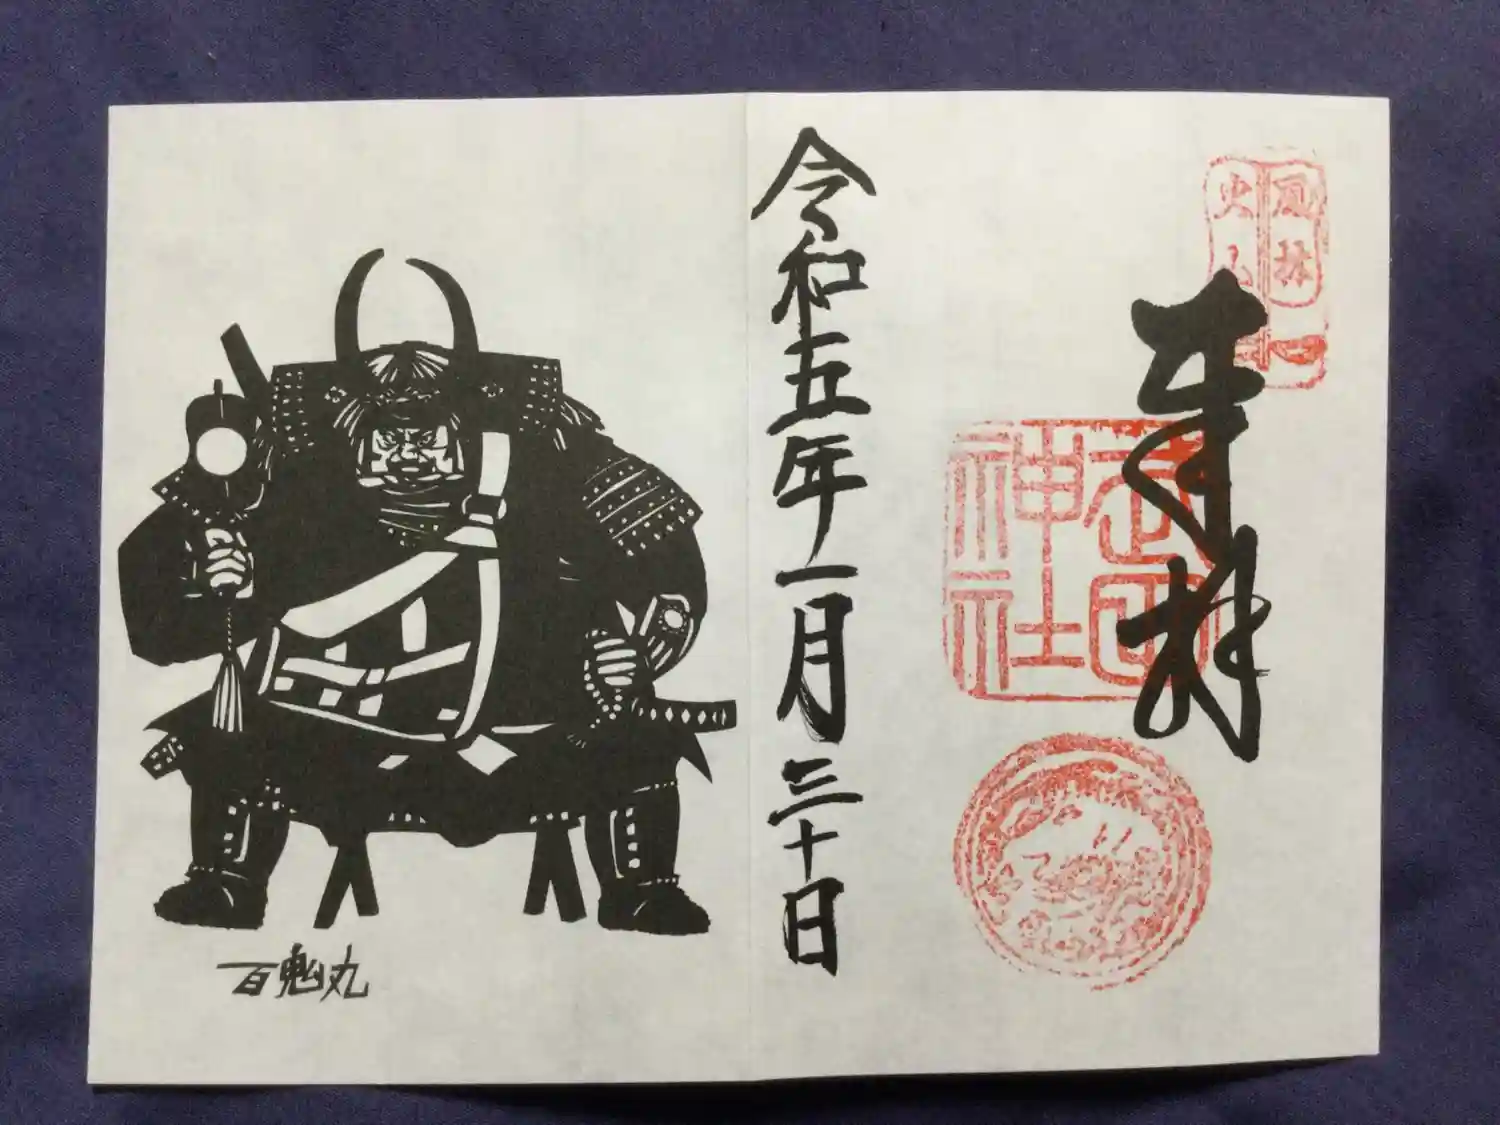 風林
火山
奉拝
武田
神社
令和五年一月三十日
百鬼丸